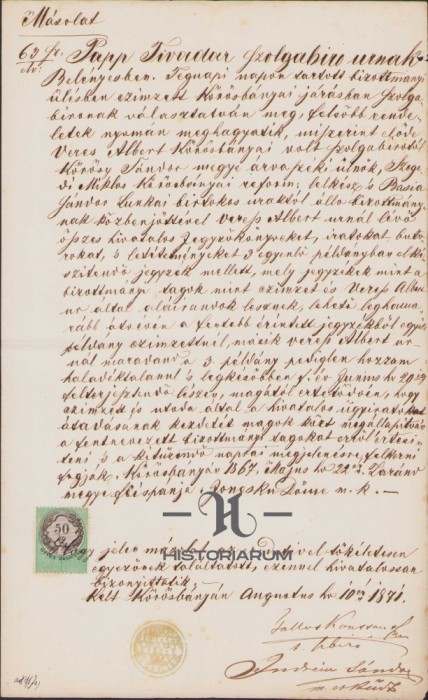 Másolat
63 sz.
eln.
Papp Tivadar szolgabiro urnak
Belényesben. Tegnapi napon tartott bizottmányi
ülésben czimzett Körösbányai járásban szolga-
bironak választatván meg, felsőbb rende-
letek nyomán meghagyatik, miszerint előde
Veres Albert Körösbányai volt szolgabirótól
Körösy Sándor megye árvaszéki ülnök, Szege-
di Miklos Körösbányai reform. lelkész s Básia
Sándor Lunkai birtokos uraktol álló bizottmány-
nak közbenjöttével Veress Albert urnál lévő
összes hivatalos Jegyzőkönyveket, iratokat, buto-
rokat, s letéteményeket 3 egyenlő példányban el ké-
szitendő jegyzék mellett, mely jegyzékek mint a
bizottmányi tagok mint czimzett és Veress Albert
ur által aláirandók lesznek, lehető leghama-
rább átvévén a fentebb érintett jegyzékből egyik
példány czimzettnél, másik Veress Albert ur-
nál maradand a 3. példány pediglen hozzám
haladéktalanul s legkésőbben f. év Junius hó 20ig
felterjesztendő leszen, magától értetődvén, hogy
czimzett és utoda által a hivatalos ügyiratokat
átadásának kezdetét magok közt megállapitván
a fentnevezett bizottmányi tagokat erről értesi-
teni s a kitüzendő naptai megjelenésre felkérni
fogják. Körösbányán 1867. Május hó 22én Zaránd
megye főispánja Döme m. k. —
HISTORIARUM
50
hogy jelen másolat tökéletesen
egyezőnek találtatott, ezennel hivatalossan
bizonyittatik.
Kelt Körösbányán Augustus hó 10én 1871.
s. biró
Sándor